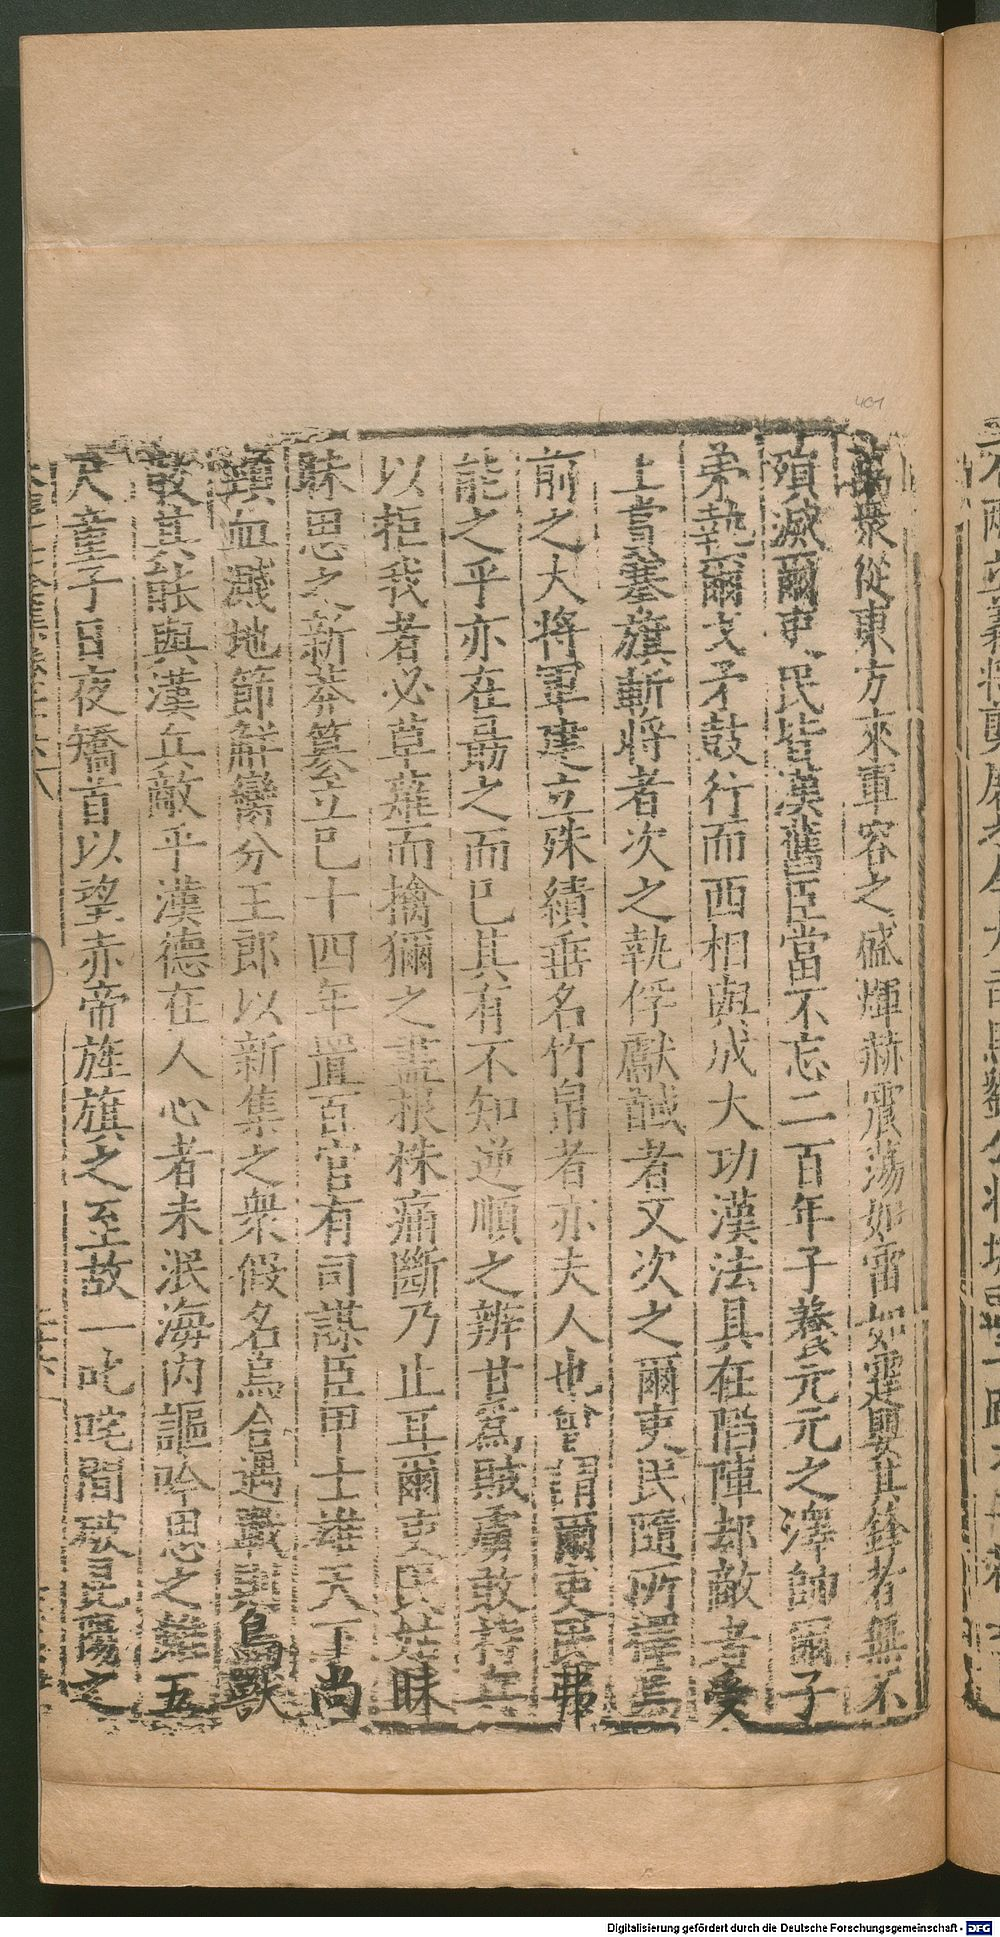 萬衆從東方來軍容之盛輝赫震蕩如雷如霆嬰其鋒者無不
殞滅爾吏民皆漢舊臣當不忘二百年子養元元之澤帥爾子
弟執爾戈矛鼓行而西相與成大功漢法具在陷陣却敵者受
上賞搴旗斬將者次之執俘獻馘者又次之爾吏民隨所擇焉
前之大將軍建立殊績垂名竹帛者亦夫人也曾謂爾吏民弗
能之乎亦在勗之而已其有不知逆順之辨甘爲賊虜敢持兵
以拒我者必草薙而擒獮之盡根株痛斷乃止耳爾吏民其昧
昧思之新莽簒立已十四年置百官有司謀臣甲士雄天下尚
頸血濺地節解臠分王郎以新集之衆假名烏合遇戰則鳥獸
散其能與漢兵敵乎漢德在人心者未泯海内謳吟思之雖五
尺童子日夜矯首以望赤帝旌旗之至故一叱咤間破昆陽之
401
Digitalisierung gefördert durch die Deutsche Forschungsgemeinschaft - DFG